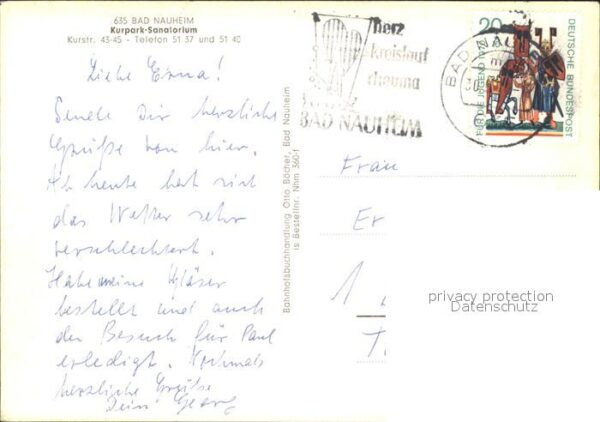 635 BAD NAUHEIM
Kurpark-Sanatorium
Kurstr. 43-45 - Telefon 51 37 und 51 40
Liebe Erna!
Sende Dir herzliche
Grüße von hier.
Ab heute hat sich
das Wetter sehr
verschlechtert.
Habe meine Gläser
bestellt und auch
den Besuch für Paul
erledigt. Nochmals
herzliche Grüße
Dein Georg
Bahnhofsbuchhandlung Otto Böcher, Bad Nauheim
is Bestellnr. Nhm 360-f
herz
kreislauf
rheuma
BAD NAUHEIM
BAD NAU
20
DEUTSCHE BUNDESPOST
FÜR DIE JUGEND 1970
Frau
Er
1
T
privacy protection
Datenschutz